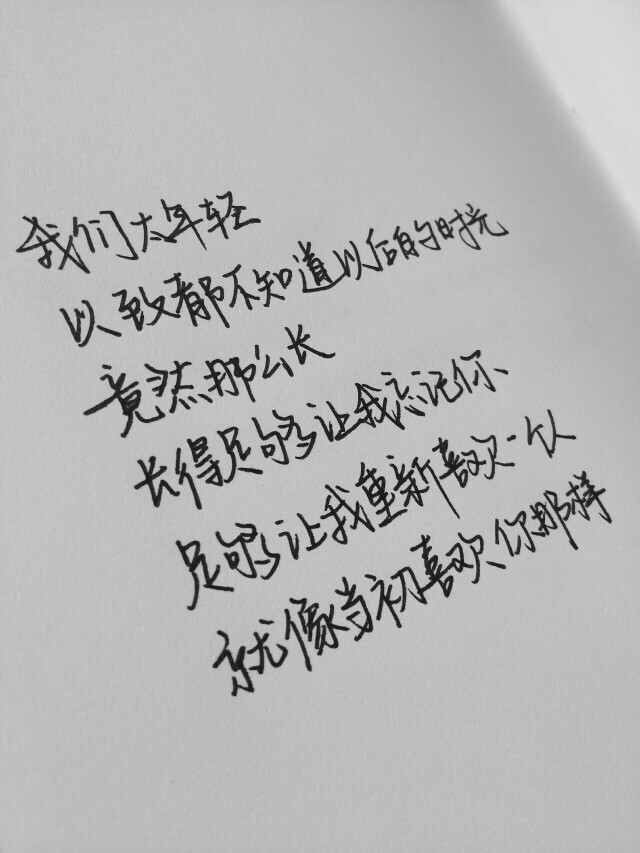 我们太年轻
以致都不知道以后的时光
竟然那么长
长得足够让我忘记你
足够让我重新喜欢一个人
就像当初喜欢你那样